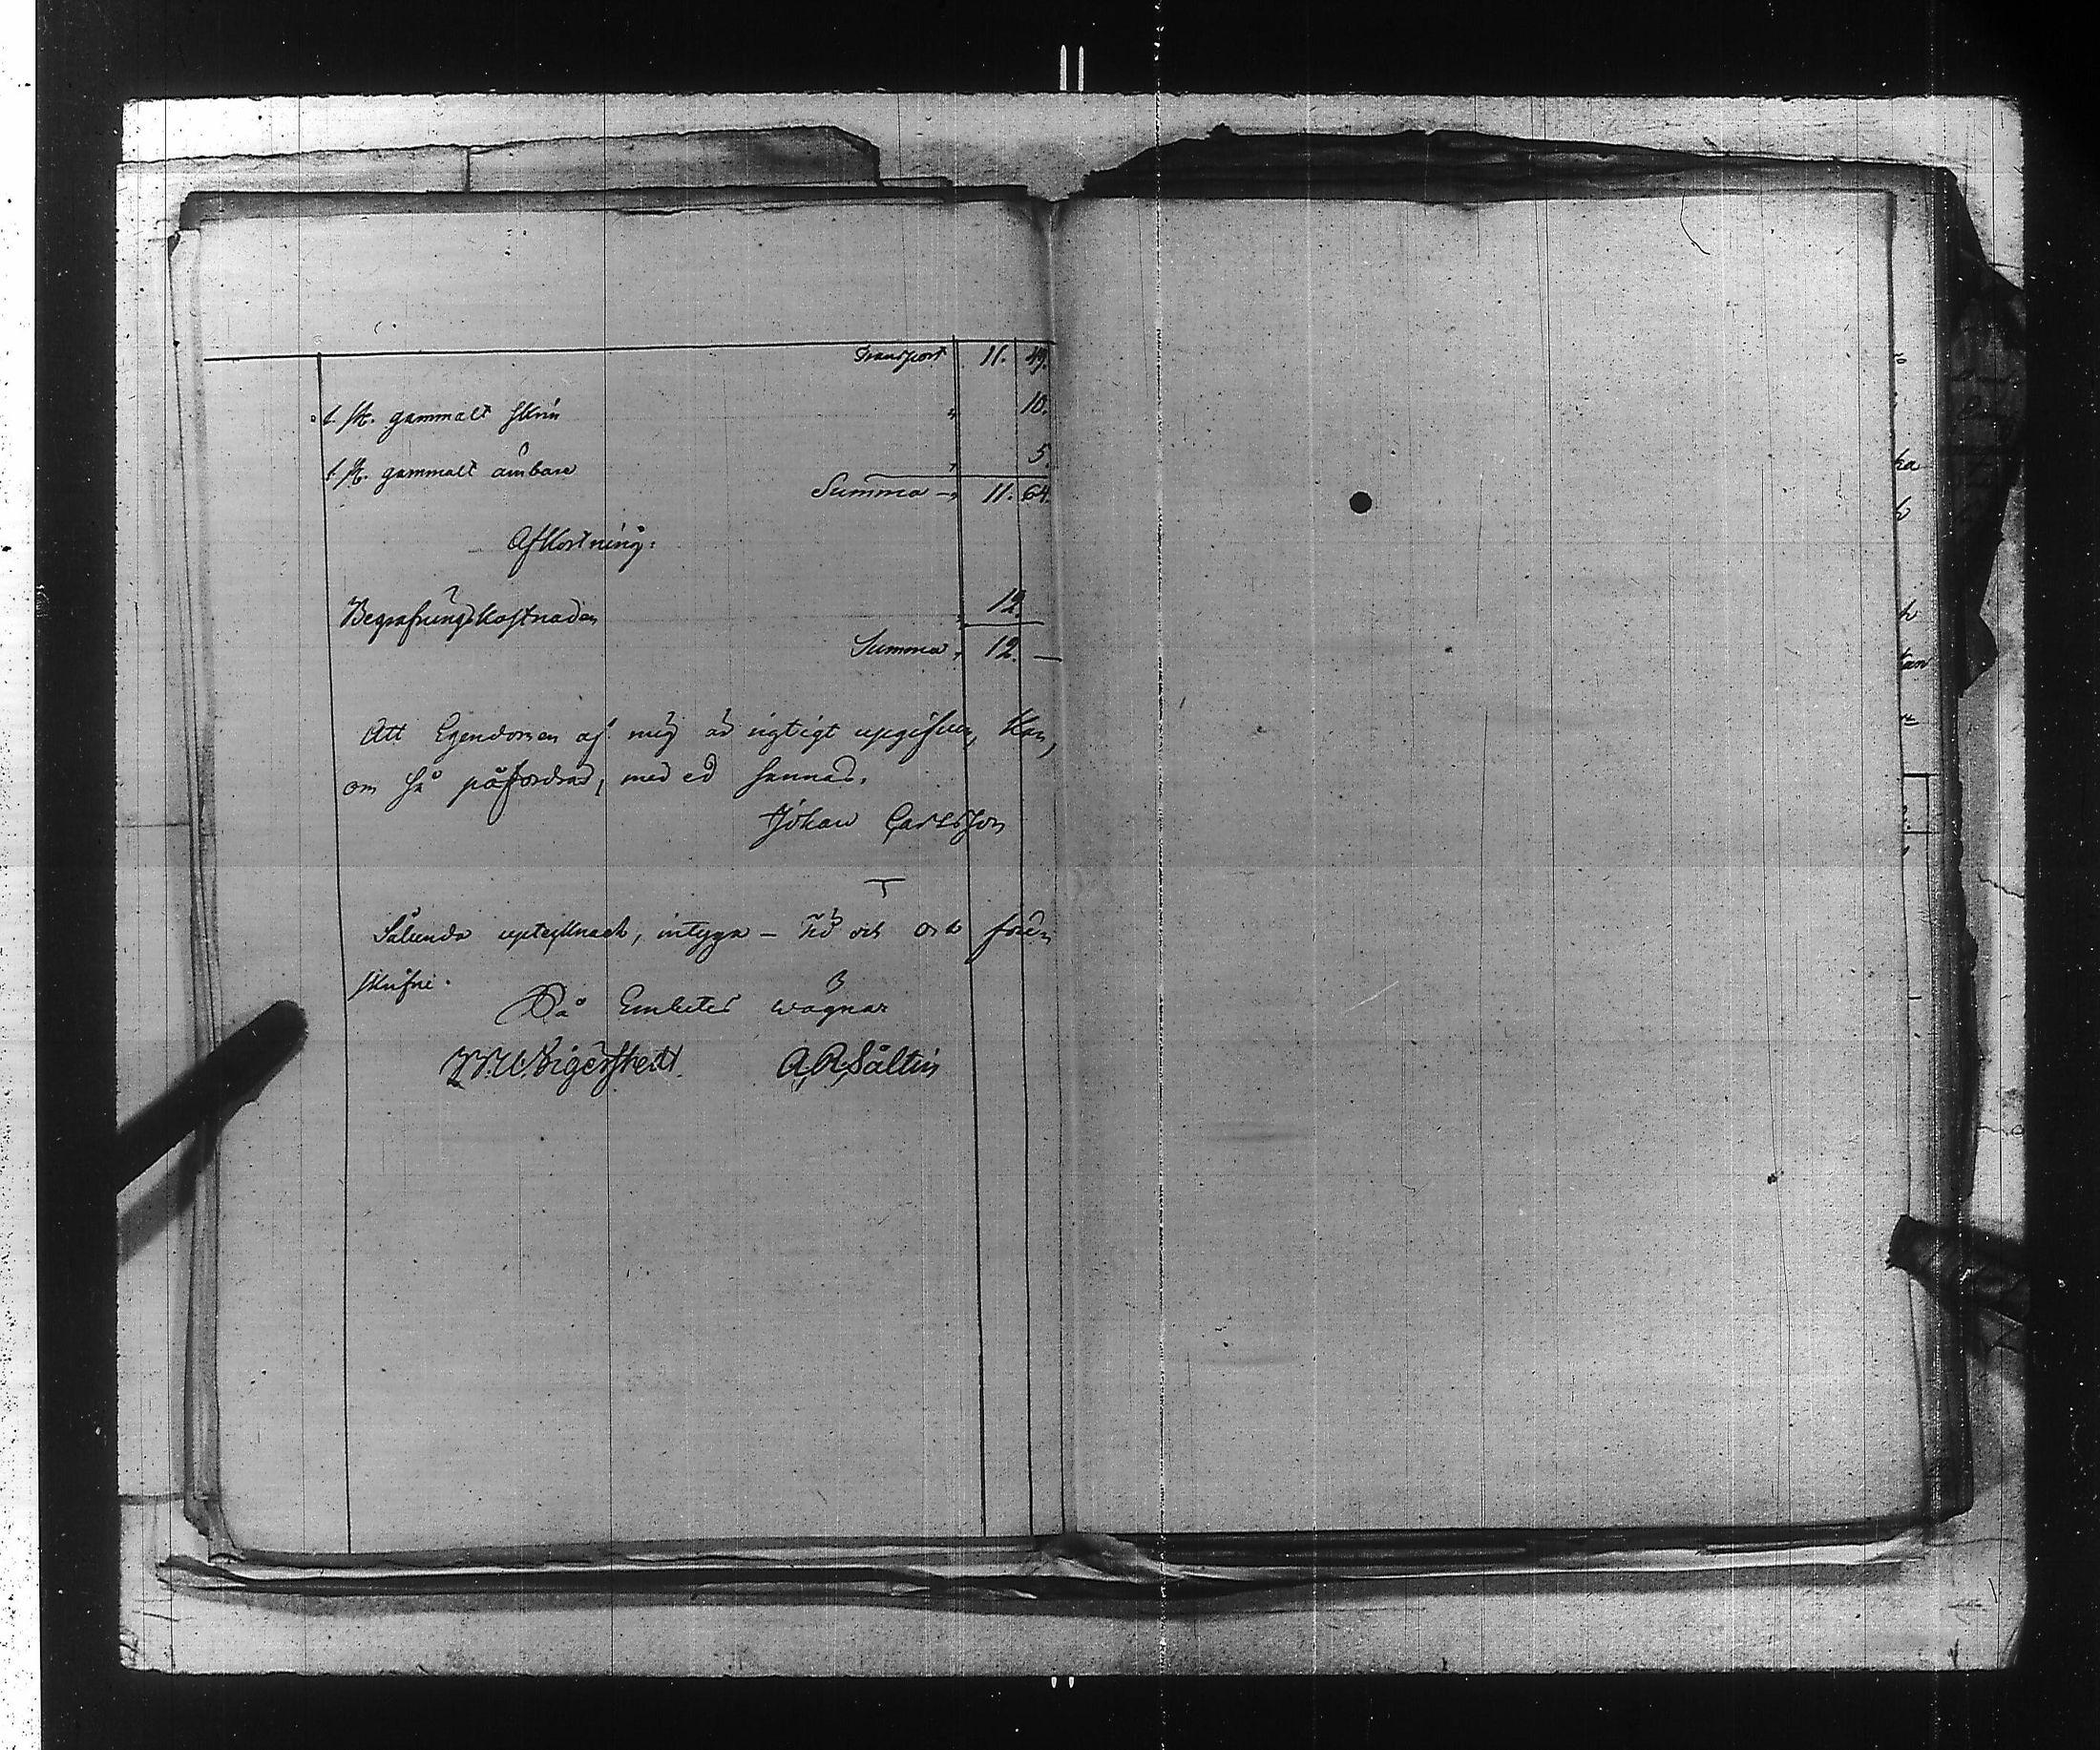 Transport 11. 49.
1. st. gammalt skrin " 10.
1. st. gammalt ämbare " 5.
Summa 11. 64.
Afkortning:
Begrafningskostnaden 12.
Summa 12. —
Att Egendomen af mig är rigtigt uppgifven, kan,
om så påfordras, med ed sannas.
Johan Carlsson
Sålunda uptecknadt, intyga – Tid och Ort förr
skrifne.
På Embetes wägnar
A. R. Sältin
ka
kan